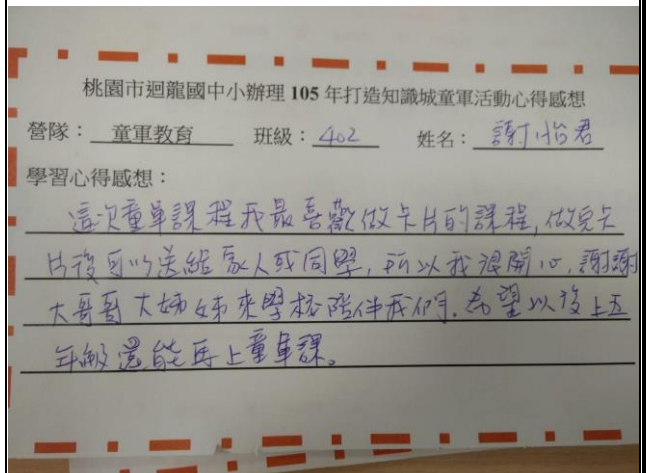 桃園市迴龍國中小辦理 105 年打造知識城童軍活動心得感想
營隊：童軍教育 班級：402 姓名：謝怡君
學習心得感想：
這次童軍課程我最喜歡做卡片的課程,做完卡
片後可以送給家人或同學,所以我很開心,謝謝
大哥哥大姊姊來學校陪伴我們.希望以後上五
年級還能再上童軍課。